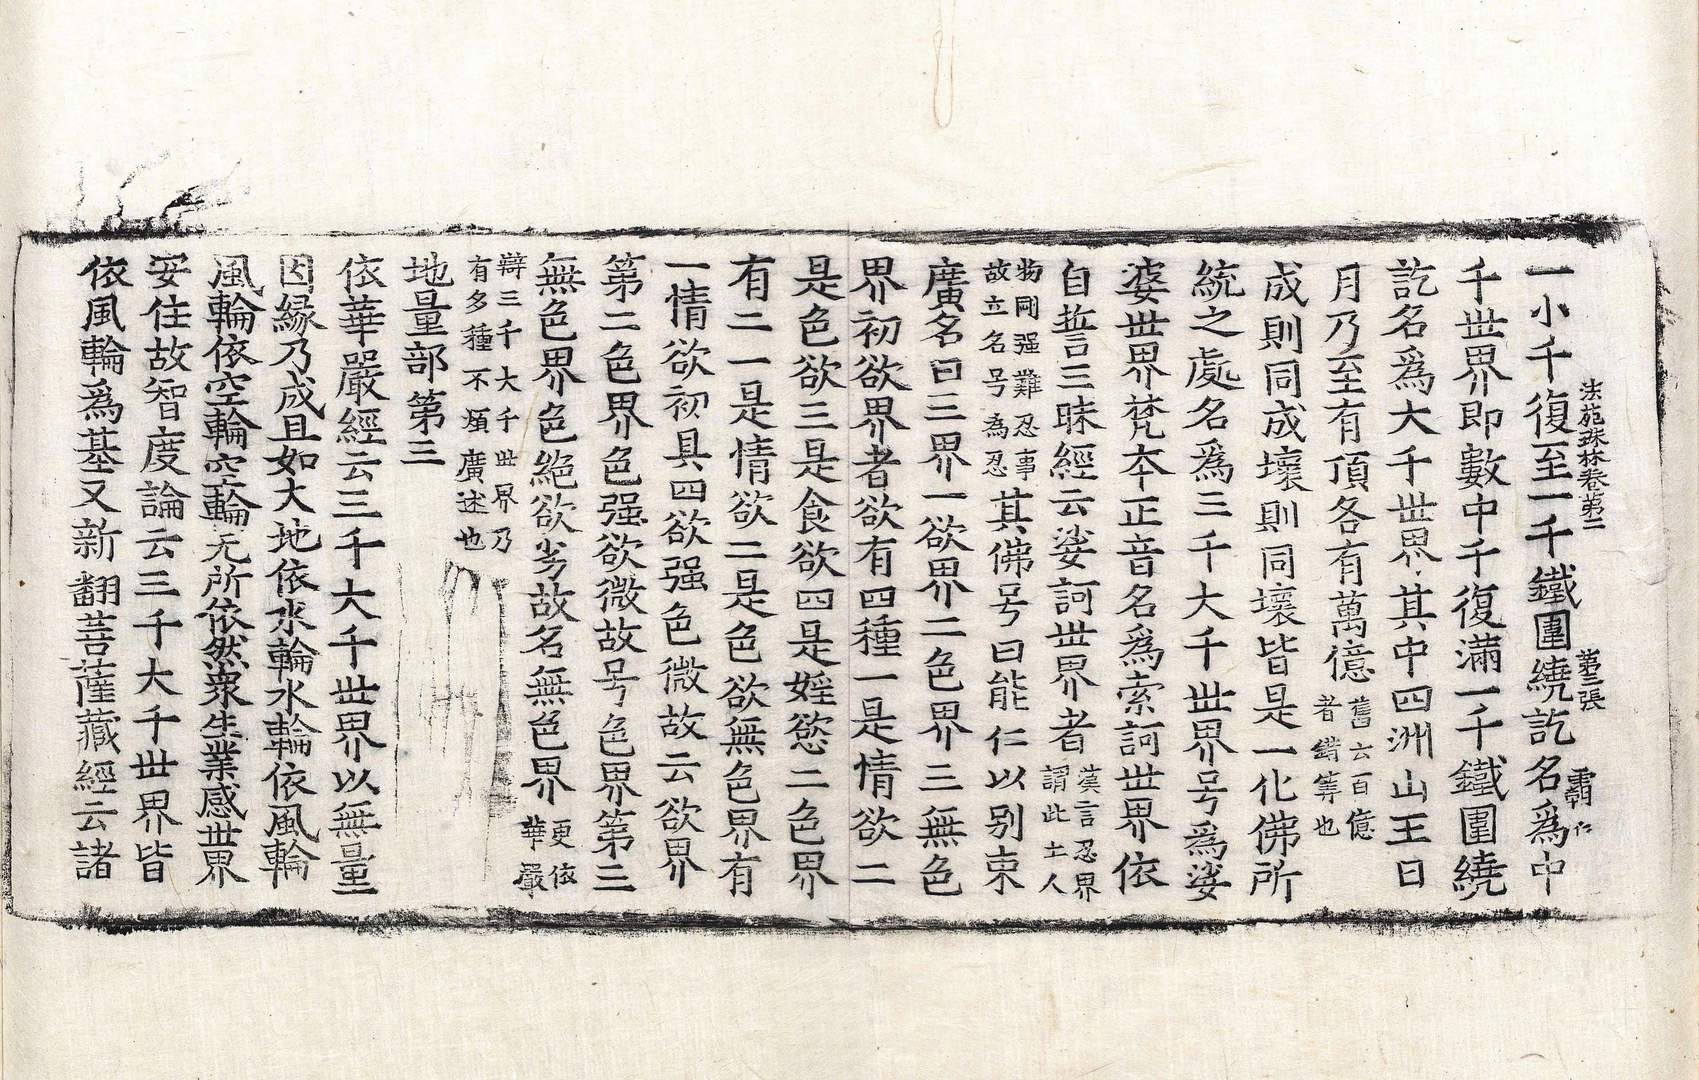 法苑珠林卷第二　第三張　覇　仁
一小千復至一千鐵圍繞訖名爲中
千世界即數中千復滿一千鐵圍繞
訖名爲大千世界其中四洲山王日
月乃至有頂各有萬億舊云百億者錯筭也
成則同成壞則同壞皆是一化佛所
統之處名爲三千大千世界号爲娑
婆世界梵夲正音名爲索訶世界依
自誓三昧經云娑訶世界者漢言忍界謂此土人
物剛强難忍事故立名号為忍其佛号曰能仁以別束
廣名曰三界一欲界二色界三無色
界初欲界者欲有四種一是情欲二
是色欲三是食欲四是婬慾二色界
有二一是情欲二是色欲無色界有
一情欲初具四欲强色微故云欲界
第二色界色强欲微故号色界第三
無色界色絕欲劣故名無色界更依華嚴
辯三千大千世界乃有多種不煩廣述也
地量部第三
依華嚴經云三千大千世界以無量
因緣乃成且如大地依水輪水輪依風輪
風輪依空輪空輪无所依然衆生業感世界
安住故智度論云三千大千世界皆
依風輪爲基又新翻菩薩藏經云諸